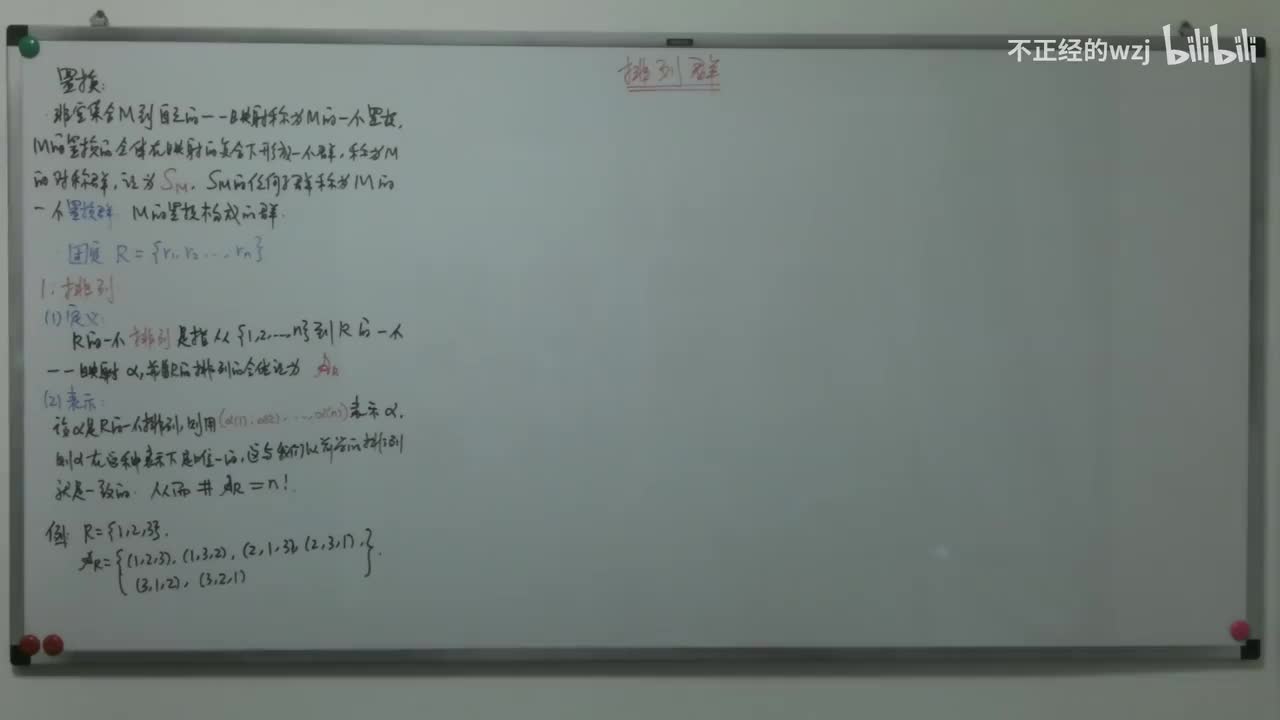 不正经的wzj bilibili
排列群
置换:
非空集合M到自己的一一映射称为M的一个置换,
M的置换的全体在映射的复合下形成一个群,称为M
的对称群,记为SM. SM的任何子群称为M的
一个置换群. M的置换构成的群.
固定 R={r1,r2…,rn}
1.排列
(1)定义:
R的一个排列是指从{1,2,…,n}到R的一个
一一映射α,并且R的排列的全体记为 AR
(2)表示:
设α是R的一个排列,则用(α(1),α(2),…,α(n))表示α,
则α在这种表示下是唯一的,这与我们以前学的排列
就是一致的. 从而 # AR=n!.
例: R={1,2,3}.
AR={(1,2,3),(1,3,2),(2,1,3),(2,3,1),
(3,1,2),(3,2,1)}.